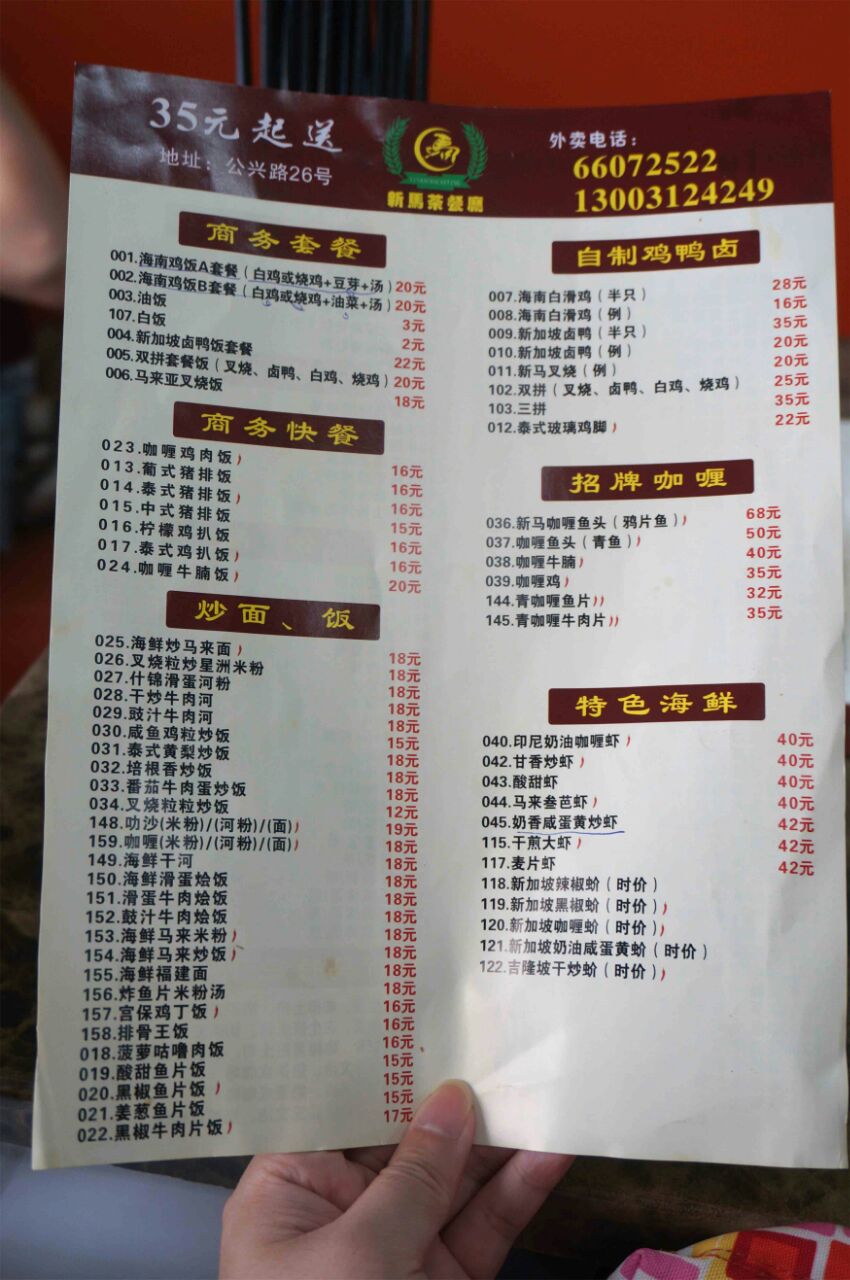 35元起送
地址：公兴路26号
新馬茶餐廳
外卖电话：
66072522
13003124249
商务套餐
001.海南鸡饭A套餐（白鸡或烧鸡+豆芽+汤）20元
002.海南鸡饭B套餐（白鸡或烧鸡+油菜+汤）20元
003.油饭 3元
107.白饭 2元
004.新加坡卤鸭饭套餐 22元
005.双拼套餐饭（叉烧、卤鸭、白鸡、烧鸡）20元
006.马来亚叉烧饭 18元
商务快餐
023.咖喱鸡肉饭 16元
013.葡式猪排饭 16元
014.泰式猪排饭 16元
015.中式猪排饭 15元
016.柠檬鸡扒饭 16元
017.泰式鸡扒饭 16元
024.咖喱牛腩饭 20元
炒面、饭
025.海鲜炒马来面 18元
026.叉烧粒炒星洲米粉 18元
027.什锦滑蛋河粉 18元
028.干炒牛肉河 18元
029.豉汁牛肉河 18元
030.咸鱼鸡粒炒饭 15元
031.泰式黄梨炒饭 18元
032.培根香炒饭 18元
033.番茄牛肉蛋炒饭 18元
034.叉烧粒粒炒饭 12元
148.叻沙(米粉)/(河粉)/(面) 19元
159.咖喱(米粉)/(河粉)/(面) 18元
149.海鲜干河 18元
150.海鲜滑蛋烩饭 18元
151.滑蛋牛肉烩饭 18元
152.豉汁牛肉烩饭 18元
153.海鲜马来米粉 18元
154.海鲜马来炒饭 18元
155.海鲜福建面 18元
156.炸鱼片米粉汤 18元
157.宫保鸡丁饭 16元
158.排骨王饭 16元
018.菠萝咕噜肉饭 16元
019.酸甜鱼片饭 15元
020.黑椒鱼片饭 15元
021.姜葱鱼片饭 15元
022.黑椒牛肉片饭 17元
自制鸡鸭卤
007.海南白滑鸡（半只） 28元
008.海南白滑鸡（例） 16元
009.新加坡卤鸭（半只） 35元
010.新加坡卤鸭（例） 20元
011.新马叉烧（例） 20元
102.双拼（叉烧、卤鸭、白鸡、烧鸡） 25元
103.三拼 35元
012.泰式玻璃鸡脚 22元
招牌咖喱
036.新马咖喱鱼头（鸦片鱼） 68元
037.咖喱鱼头（青鱼） 50元
038.咖喱牛腩 40元
039.咖喱鸡 35元
144.青咖喱鱼片 32元
145.青咖喱牛肉片 35元
特色海鲜
040.印尼奶油咖喱虾 40元
042.甘香炒虾 40元
043.酸甜虾 40元
044.马来叁芭虾 40元
045.奶香咸蛋黄炒虾 42元
115.干煎大虾 42元
117.麦片虾 42元
118.新加坡辣椒蚧（时价）
119.新加坡黑椒蚧（时价）
120.新加坡咖喱蚧（时价）
121.新加坡奶油咸蛋黄蚧（时价）
122.吉隆坡干炒蚧（时价）